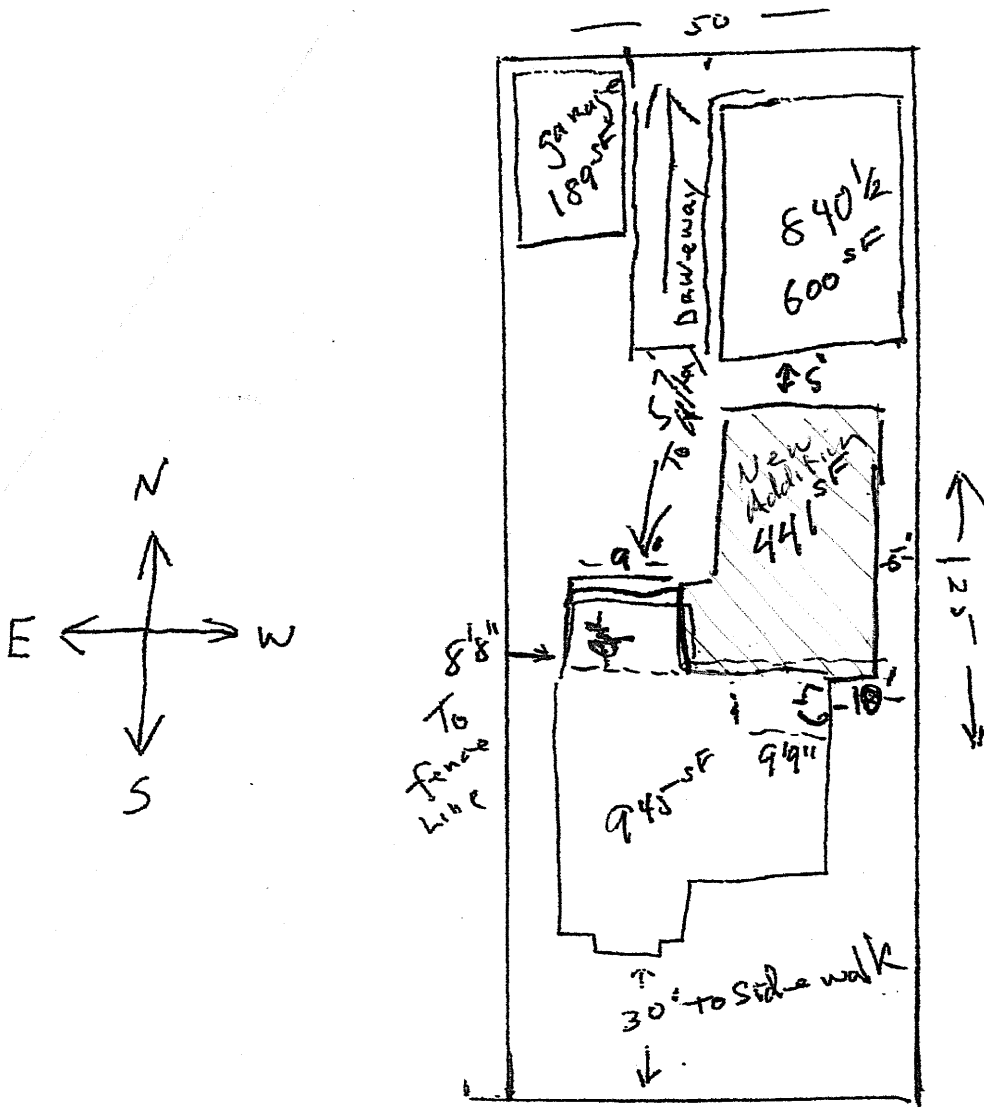 50
Garage
189 SF
Driveway
840 1/2
600 SF
5'
To
New
Addition
441 SF
9'
5'
125
N
E
W
S
8'8"
To
fence
Line
10'
9'9"
945 SF
30' To Sidewalk